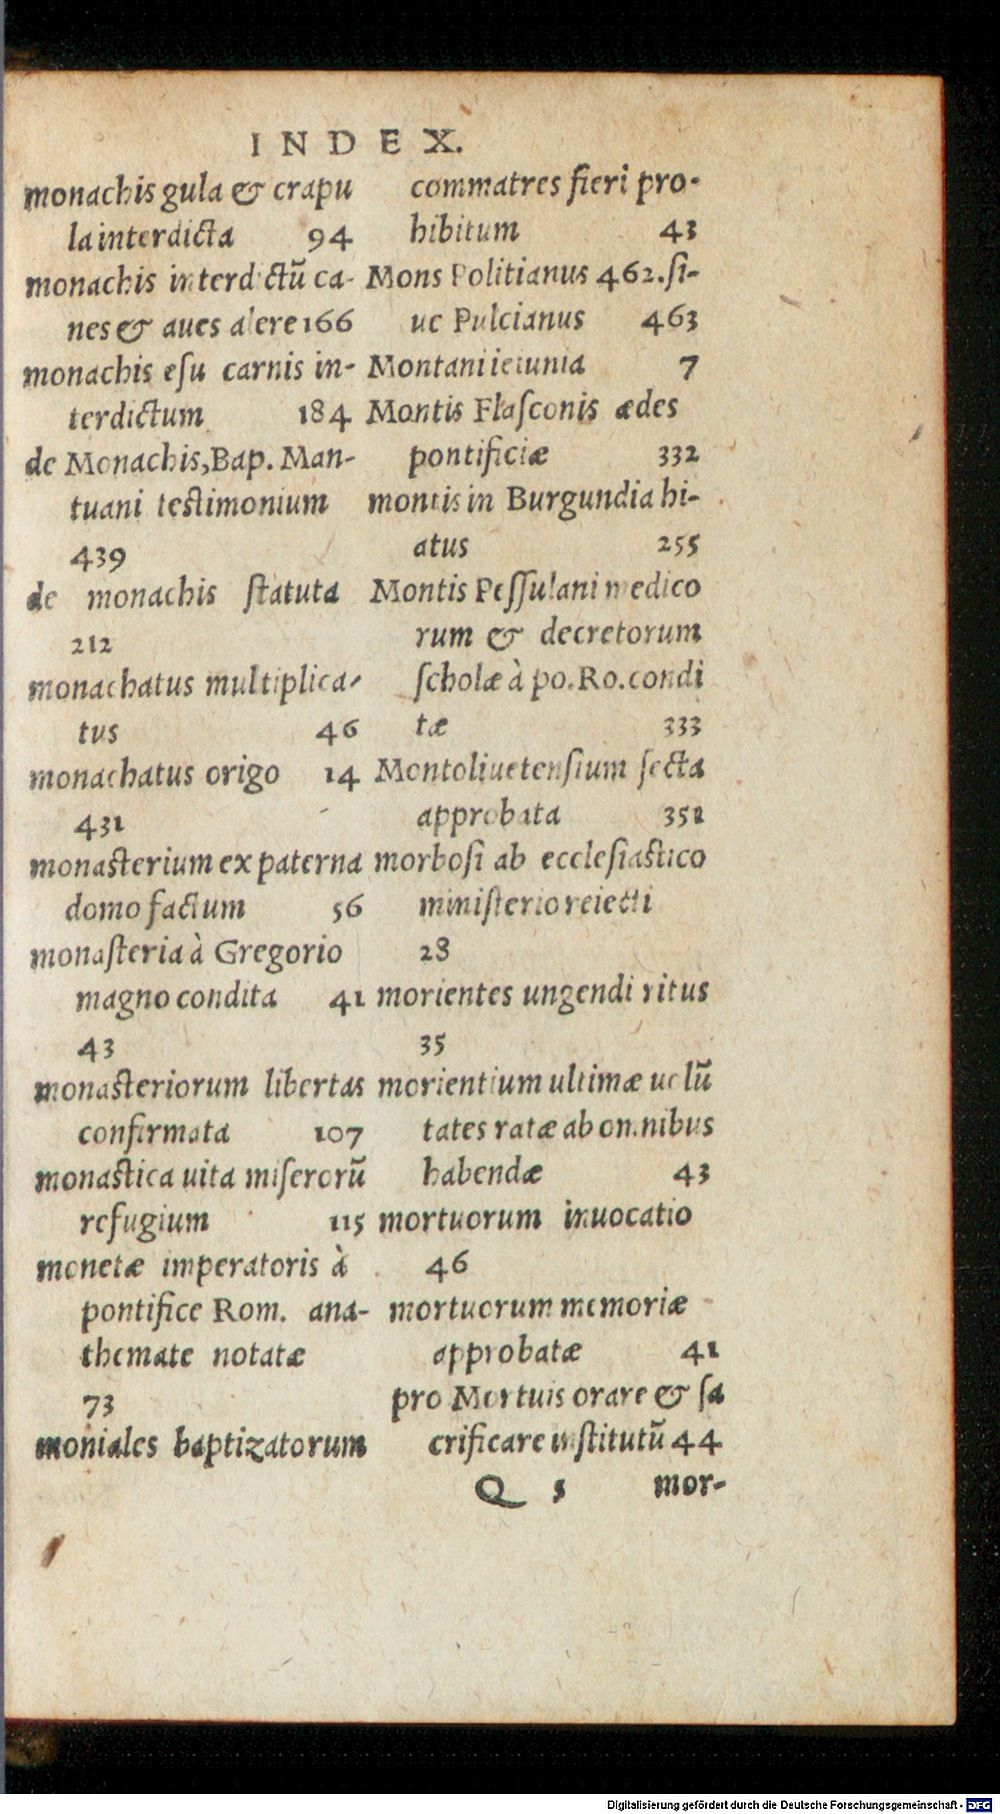 INDEX.
monachis gula & crapu
la interdicta 94
monachis interdictũ ca-
nes & aues alere 166
monachis esu carnis in-
terdictum 184
de Monachis, Bap. Man-
tuani testimonium
439
de monachis statuta
212
monachatus multiplica-
tus 46
monachatus origo 14
431
monasterium ex paterna
domo factum 56
monasteria à Gregorio
magno condita 41
43
monasteriorum libertas
confirmata 107
monastica uita miserorũ
refugium 115
monetæ imperatoris à
pontifice Rom. ana-
themate notatæ
73
moniales baptizatorum
commatres fieri pro-
hibitum 43
Mons Politianus 462. si-
ue Pulcianus 463
Montani ieiunia 7
Montis Flasconis ædes
pontificiæ 332
montis in Burgundia hi-
atus 255
Montis Pessulani medico
rum & decretorum
scholæ à po. Ro. condi
tæ 333
Montoliuetensium secta
approbata 351
morbosi ab ecclesiastico
ministerio reiecti
28
morientes ungendi ritus
35
morientium ultimæ uolũ
tates ratæ ab omnibus
habendæ 43
mortuorum inuocatio
46
mortuorum memoriæ
approbatæ 41
pro Mortuis orare & sa
crificare institutũ 44
Q 5 mor-
Digitalisierung gefördert durch die Deutsche Forschungsgemeinschaft - DFG